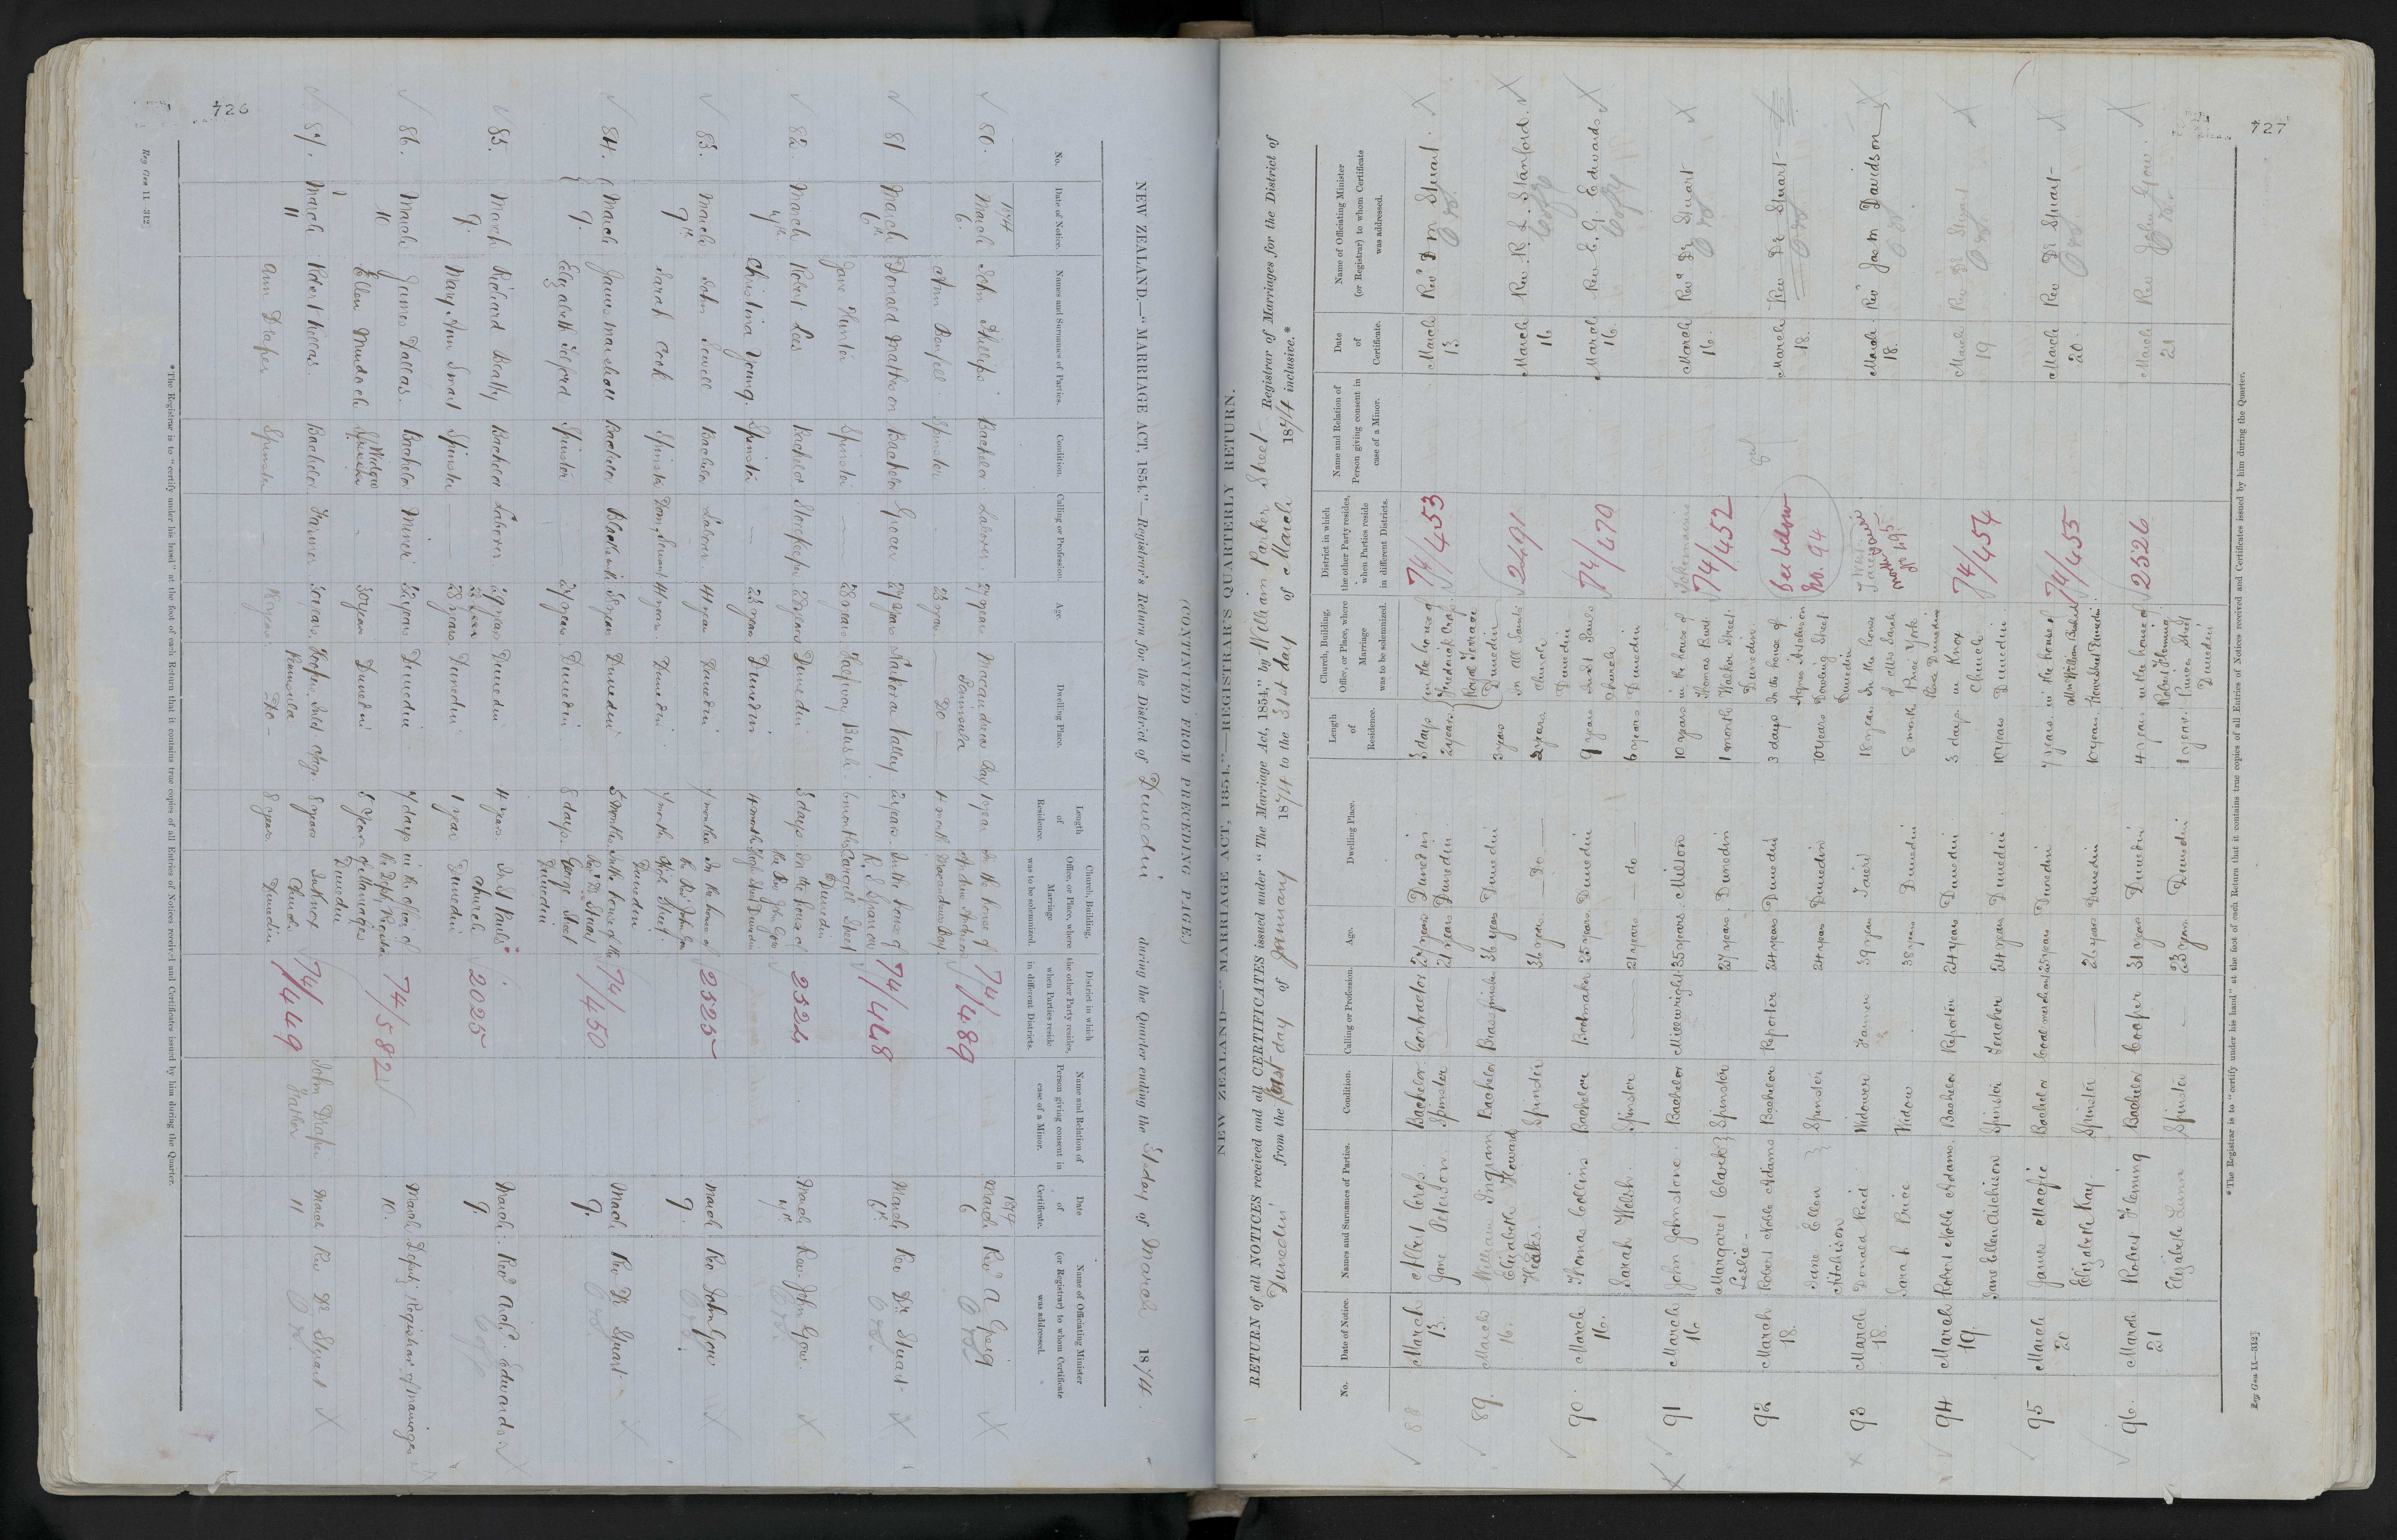 726
(CONTINUED FROM PRECEDING PAGE.)
NEW ZEALAND.—"MARRIAGE ACT, 1854."—Registrar's Return for the District of Dunedin during the Quarter ending the 31st day of March 1874.
No.
Date of Notice.
Names and Surnames of Parties.
Condition.
Calling or Profession.
Age.
Dwelling Place.
Length of Residence.
Church, Building, Office, or Place, where Marriage was to be solemnized.
District in which the other Party resides, when Parties reside in different Districts.
Name and Relation of Person giving consent in case of a Minor.
Date of Certificate.
Name of Officiating Minister (or Registrar) to whom Certificate was addressed.
80. 1874 March 6 John Phillips Bachelor Laborer 27 years Macandrews Bay Peninsula 10 years In the house of 74/489 1874 March 6 Revd A Greig
Ann Bonfell Spinster 23 years Do 4 months Macandrews Bay
81 March 6th Donald Matheson Bachelor Grocer 27 years Sakora Valley 2 years In the house of R. S. Sparrow 74/448 March 6th Rev Dr Stuart
Jane Hunter Spinster 28 years Halfway Bush 6 months Cargill Street Dunedin
82. March 7th Robert Lees Bachelor Storekeeper 28 years Dunedin 3 days In the house of the Rev John Gow 2524 March 7th Rev. John Gow.
Christina Young. Spinster — 23 years Dunedin 4 months High Street Dunedin
83. March 9th John Sewell Bachelor Laborer 41 years Dunedin 7 months In the house of the Rev John Gow 2525 March 9. Rev John Gow
Sarah Cook Spinster Dom. Servant 41 years Dunedin 7 months High Street. Dunedin
84. March 9. James Marshall Bachelor Blacksmith 38 years Dunedin 5 months In the house of the Rev Dr Stuart 74/450 March 9. Rev Dr Stuart
Elizabeth Telford Spinster 27 years Dunedin 8 days George Street Dunedin
85. March 9. Richard Beatty Bachelor Laborer 29 years Dunedin 4 years In St Pauls Church 2025 March 9. Revd Archd. Edwards
Mary Ann Smart Spinster — 22 years Dunedin 1 year Dunedin
86. March 10 James Dallas. Bachelor Miner 32 years Dunedin 7 days in the office of the Depty Registrar of Marriages 74/582 March 10. Deputy Registrar of Marriages
Ellen Murdoch Widow 30 years Dunedin 5 years Dunedin
87. March 11 Robert Kellas. Bachelor Farmer 30 years Peninsula 8 years In Knox Church 74/449 John Draper Father March 11 Rev Dr Stuart
Ann Draper Spinster — 18 years Do 8 years Dunedin
* The Registrar is to "certify under his hand" at the foot of each Return that it contains true copies of all Entries of Notices received and Certificates issued by him during the Quarter.
Reg Gen 11—312]
727
NEW ZEALAND—"MARRIAGE ACT, 1854."—REGISTRAR'S QUARTERLY RETURN.
RETURN of all NOTICES received and all CERTIFICATES issued under "The Marriage Act, 1854," by William Parker Street Registrar of Marriages for the District of
Dunedin from the first day of January 1874 to the 31st day of March 1874 inclusive.*
No.
Date of Notice.
Names and Surnames of Parties.
Condition.
Calling or Profession.
Age.
Dwelling Place.
Length of Residence.
Church, Building, Office, or Place, where Marriage was to be solemnized.
District in which the other Party resides, when Parties reside in different Districts.
Name and Relation of Person giving consent in case of a Minor.
Date of Certificate.
Name of Officiating Minister (or Registrar) to whom Certificate was addressed.
88 March 13. Albert Bachelor Contractor 27 years Dunedin 3 days in the house of Frederick 74/453 March 13. Revd D M Stuart.
Jane Peterson Spinster — 21 years Dunedin 2 years Royal Terrace Dunedin
89. March 16. William Ingram Bachelor Brassfinisher 36 years Dunedin 3 years in All Saints Church Dunedin 2491 March 16 Rev. R. L. Stanford.
Elizabeth Howard Spinster 36 years — Do — 2 years
90. March 16. Thomas Collins Bachelor Bootmaker 25 years Dunedin 9 years in St Pauls Church Dunedin 74/470 March 16. Rev E. G. Edwards
Sarah Welsh. Spinster — 21 years — do — 6 years
91 March 16 John Johnstone. Bachelor Millwright 35 years. Milton 10 years in the house of Thomas Walker Street Dunedin Tokomairiro 74/452 March 16. Revd Dr Stuart
Margaret Clark Leslie Spinster 27 years Dunedin 1 month
92 March 18. Robert Noble Adams Bachelor Reporter 24 years Dunedin 3 days In the house of Agnes Aitcheson Dowling Street Dunedin See below No. 94 March 18. Rev Dr Stuart
Jane Ellen Aitchison Spinster 24 years Dunedin 10 years
93 March 18. Donald Reid Widower Farmer 39 years Taieri 18 years In the house of Mrs Sarah Price York Place Dunedin March 18. Revd Jas M Davidson
Sarah Price Widow 38 years Dunedin 8 months
94 March 19. Robert Noble Adams. Bachelor Reporter 24 years Dunedin 3 days in Knox Church Dunedin 74/454 March 19 Rev Dr Stuart
Jane Ellen Aitchison Spinster Teacher 24 years Dunedin 10 years
95 March 20 James Macfie Bachelor Coal merchant 25 years Dunedin 7 years in the house of Mr William Dunedin 74/455 March 20. Rev Dr Stuart
Elizabeth Kay. Spinster — 26 years Dunedin 10 years
96. March 21 Robert Fleming Bachelor Cooper 31 years Dunedin 4 years in the house of Robert Fleming Street Dunedin 2526 March 21 Rev John Gow.
Elizabeth Lunn Spinster — 23 years Dunedin 1 year.
* The Registrar is to "certify under his hand" at the foot of each Return that it contains true copies of all Entries of Notices received and Certificates issued by him during the Quarter.
Reg Gen 11—312]